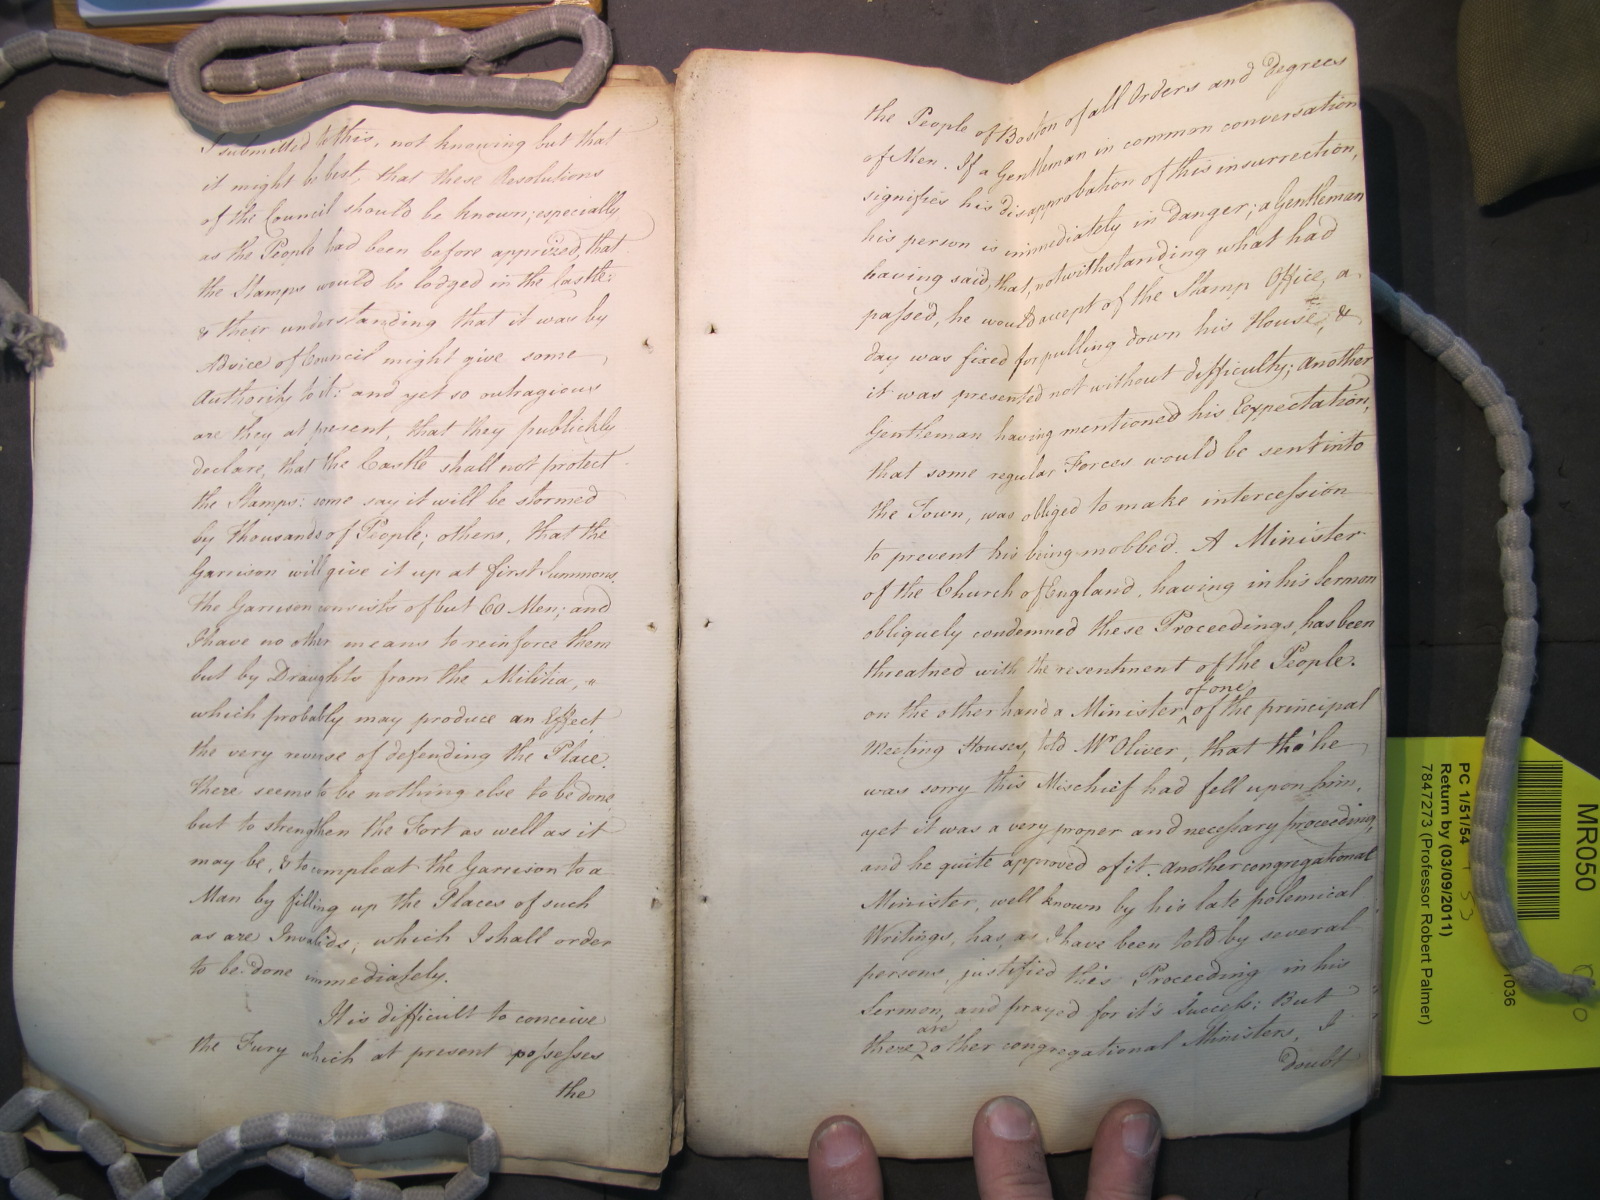 I submitted to this, not knowing but that
it might be best, that these Resolutions
of the Council should be known; especially
as the People had been before apprized, that
the Stamps would be lodged in the Castle:
& their understanding that it was by
Advice of Council might give some
Authority to it: and yet so outragious
are they at present, that they publickly
declare, that the Castle shall not protect
the Stamps: some say it will be stormed
by thousands of People; others, that the
Garrison will give it up at first Summons.
the Garrison consists of but 60 Men; and
I have no other means to reinforce them
but by Draughts from the Militia,
which probably may produce an Effect
the very reverse of defending the Place.
there seems to be nothing else to be done
but to strengthen the Fort as well as it
may be, & to compleat the Garrison to a
Man by filling up the Places of such
as are Invalids; which I shall order
to be done immediately.
It is difficult to conceive
the Fury which at present possesses
the
the People of Boston of all Orders and Degrees
of Men. If a Gentleman in common conversation
signifies his disapprobation of this insurrection,
his person is immediately in Danger; a Gentleman
having said, that, notwithstanding what had
passed, he would accept of the Stamp Office, a
day was fixed for pulling down his House, &
it was presented not without difficulty; Another
Gentleman having mentioned his Expectation,
that some regular Forces would be sent into
the Town, was obliged to make intercession
to prevent his being mobbed. A Minister
of the Church of England, having in his Sermon
obliquely condemned these Proceedings, has been
threatned with the resentment of the People.
on the other hand a Minister of one of the principal
Meeting Houses, told Mr Oliver, that tho' he
was sorry this Mischief had fell upon him,
yet it was a very proper and necessary proceeding,
and he quite approved of it. Another congregational
Minister, well known by his late polemical
Writings, has, as I have been told by several
persons, justified this Proceeding in his
Sermon, and prayed for it's Success: But
there are other congregational Ministers, I
doubt
MR050
PC 1/51/54
Return by (03/09/2011)
7847273 (Professor Robert Palmer)